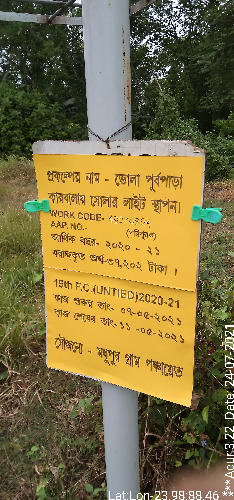 প্রকল্পের নাম - ভোলা পূর্বপাড়া
সোলার লাইট স্থাপন।
WORK CODE-
AAP. NO.-
আর্থিক বছর- ২০২০ - ২১
বরাদ্দকৃত অর্থ-৩৭,২০২ টাকা ।
15th F.C.(UNTIED)2020-21
কাজ শুরুর তাং- ০৭-০৫-২০২১
কাজ শেষের তাং-১১ -০৫-২০২১
সৌজন্যে - মধুপুর গ্রাম পঞ্চায়েত
Lat:Lon-23.98:88.46
***Acur:3.22 Date 24-07-2021***